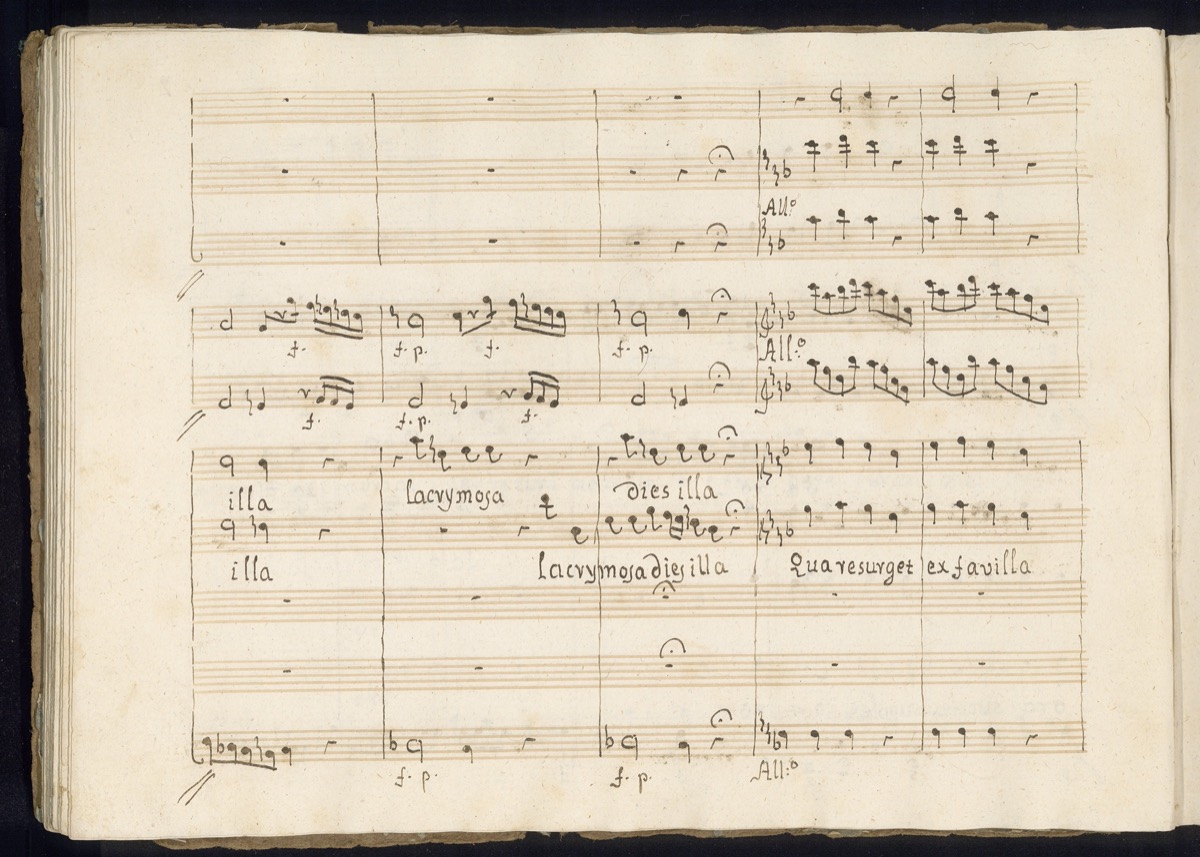 All:o
f.
f. p. f.
f. p.
All:o
f.
f. p.
f.
illa lacrymosa dies illa
illa lacrymosa dies illa Qua resurget ex favilla
f. p. f. p. All:o